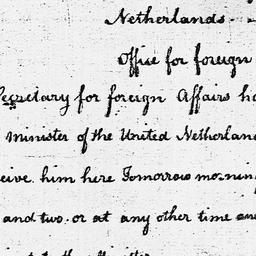 Netherlands.
Office for foreign
Secretary for foreign Affairs ha
minister of the United Netherland
eive him here Tomorrow morning
and two or at any other time